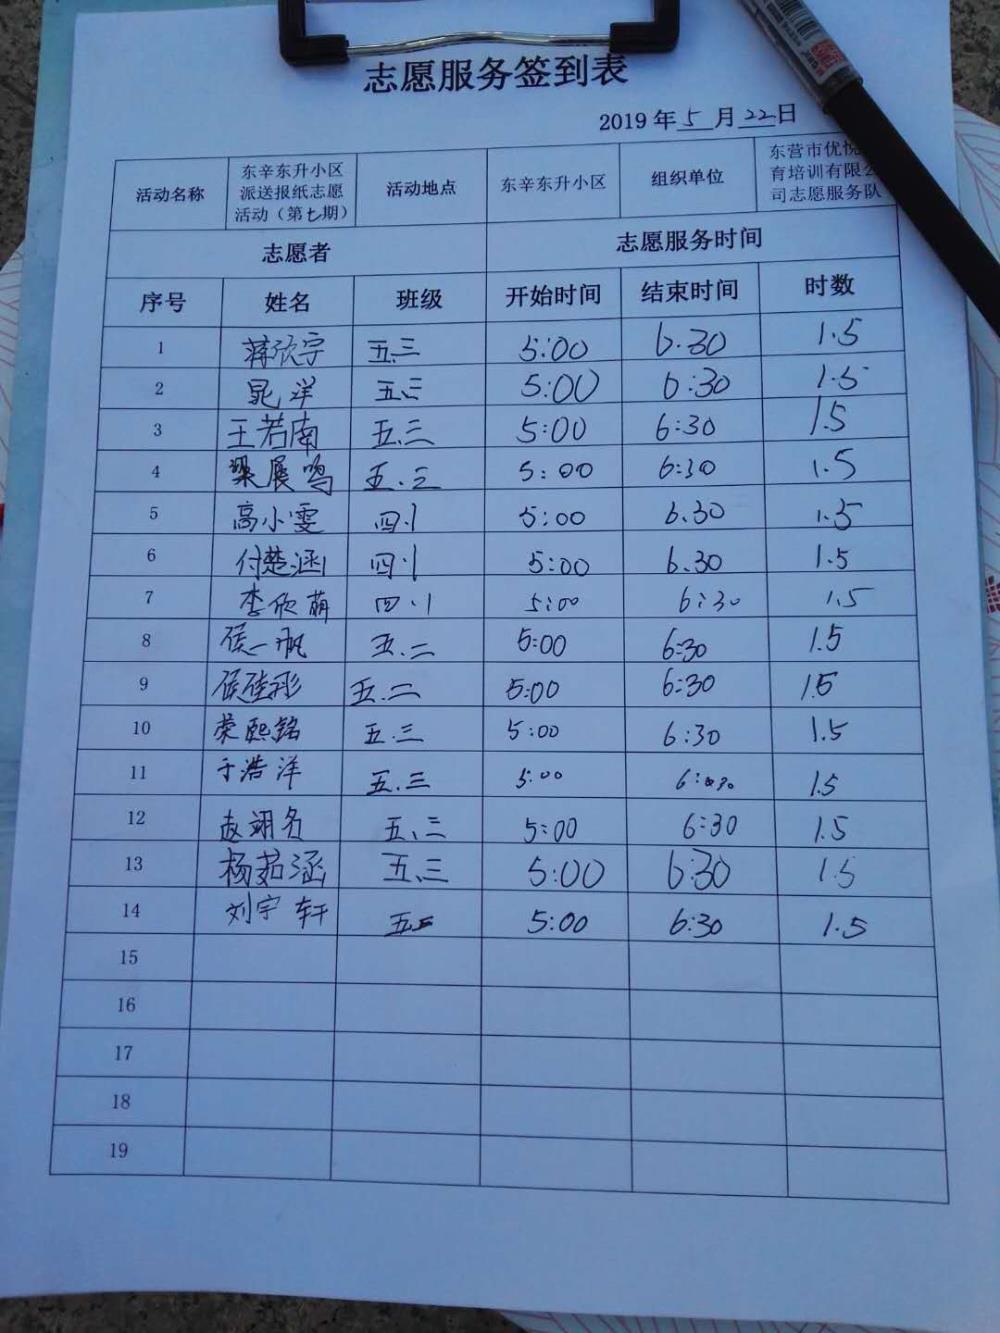 志愿服务签到表
2019 年 5 月 22 日
活动名称 东辛东升小区派送报纸志愿活动（第七期） 活动地点 东辛东升小区 组织单位 东营市优悦 育培训有限公司志愿服务队
志愿者 志愿服务时间
序号 姓名 班级 开始时间 结束时间 时数
1 蒋欣宇 五.三 5:00 6.30 1.5
2 晁洋 五.三 5:00 6:30 1.5
3 王若南 五.三 5:00 6:30 1.5
4 梁展鸣 五.三 5:00 6:30 1.5
5 高小雯 四.1 5:00 6.30 1.5
6 付楚涵 四.1 5:00 6.30 1.5
7 李欣萌 四.1 5:00 6:30 1.5
8 侯一帆 五.二 5:00 6:30 1.5
9 侯 彤 五.二 5:00 6:30 1.5
10 荣熙铭 五.三 5:00 6:30 1.5
11 于浩洋 五.三 5:00 6:30 1.5
12 赵翊名 五.三 5:00 6:30 1.5
13 杨茹涵 五.三 5:00 6:30 1.5
14 刘宇轩 5:00 6:30 1.5
15
16
17
18
19